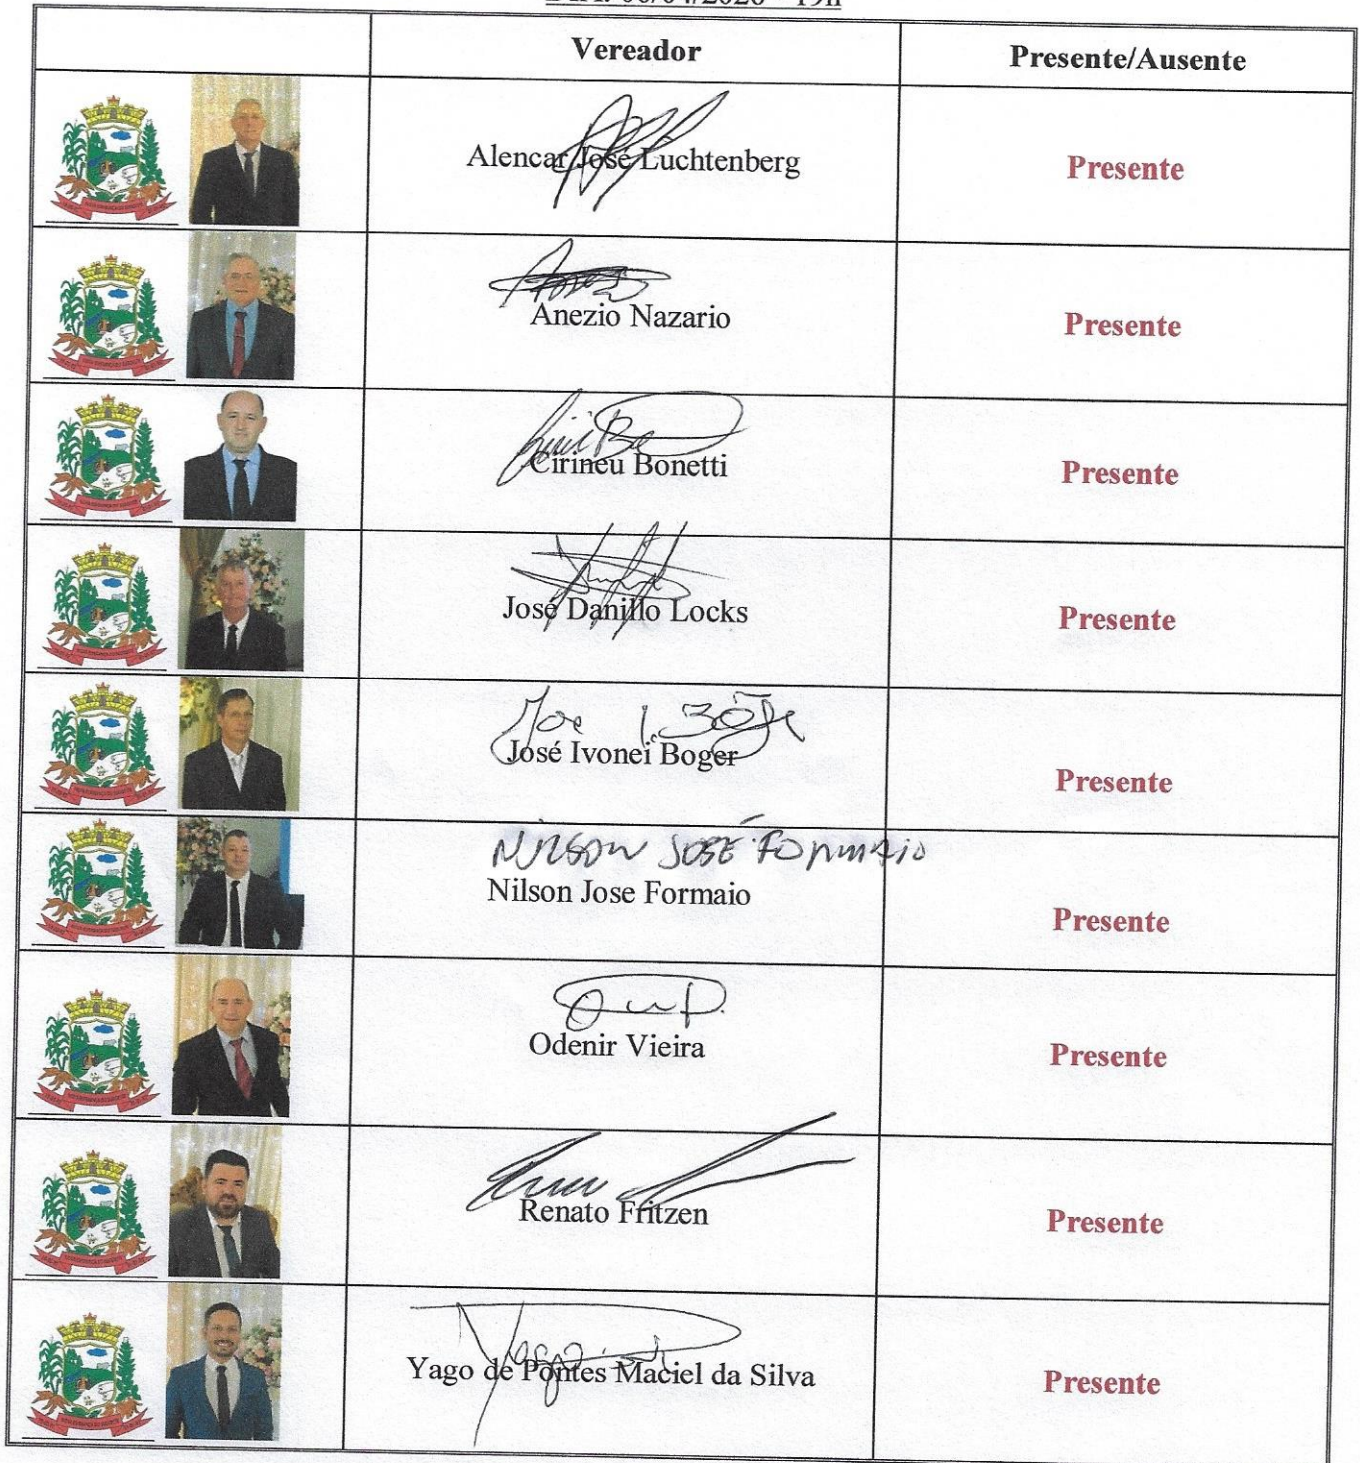 DIA: 06/04/2026 - 19h
Vereador Presente/Ausente
Alencar José Luchtenberg Presente
Anezio Nazario Presente
Cirineu Bonetti Presente
José Danillo Locks Presente
José Ivonei Boger Presente
NILSON JOSÉ FORMAIO
Nilson Jose Formaio Presente
Odenir Vieira Presente
Renato Fritzen Presente
Yago de Pontes Maciel da Silva Presente